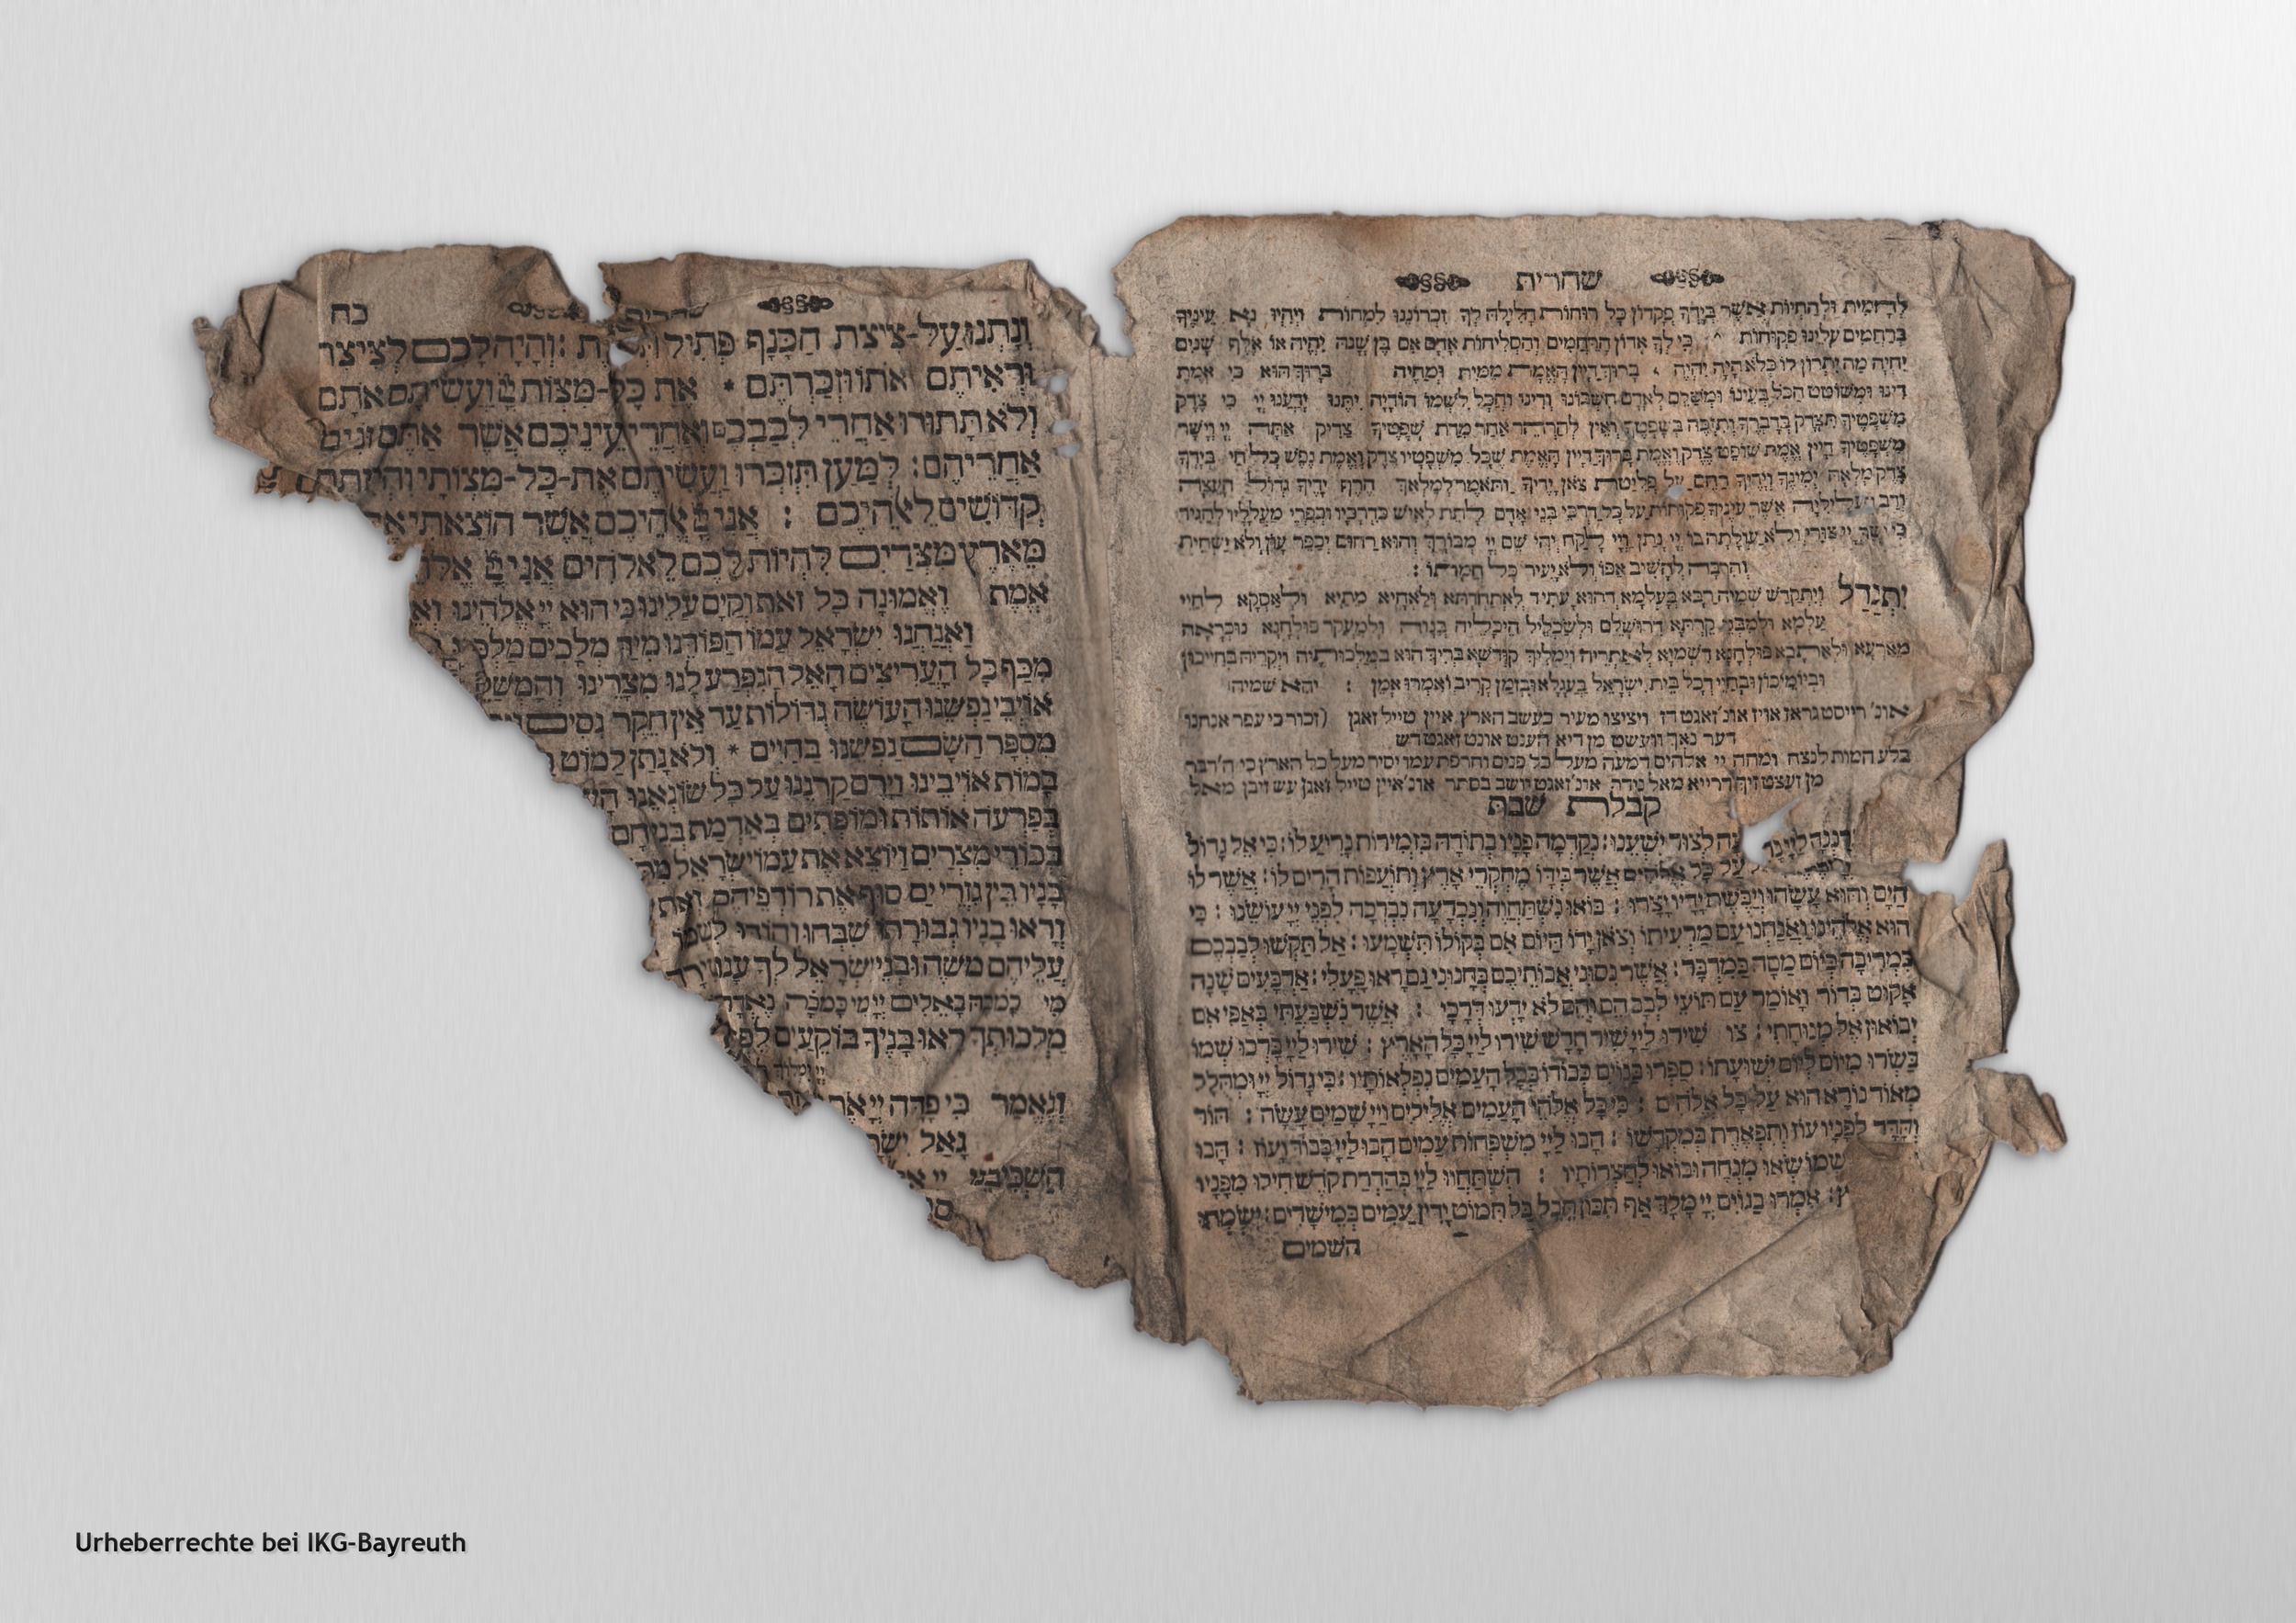 שחרית
לְהָמִית וּלְהַחֲיוֹת אֲשֶׁר בְּיָדְךָ פִּקְדוֹן כָּל רוּחוֹת חָלִילָה לְךָ זִכְרוֹנֵנוּ לִמְחוֹת וְיִהְיוּ נָא עֵינֶיךָ
בְּרַחֲמִים עָלֵינוּ פְּקוּחוֹת כִּי לְךָ אָדוֹן הָרַחֲמִים וְהַסְּלִיחוֹת אָדָם אִם בֶּן שָׁנָה יִהְיֶה אוֹ אֶלֶף שָׁנִים
יִחְיֶה מַה יִּתְרוֹן לוֹ כְּלֹא הָיָה יִהְיֶה בָּרוּךְ דַּיָּין הָאֱמֶת מֵמִית וּמְחַיֶּה בָּרוּךְ הוּא כִּי אֱמֶת
דִּינוֹ וּמְשׁוֹטֵט הַכֹּל בְּעֵינוֹ וּמְשַׁלֵּם לְאָדָם חֶשְׁבּוֹנוֹ וְדִינוֹ וְהַכֹּל לִשְׁמוֹ הוֹדָיָה יִתְּנוּ יָדַעְנוּ יְיָ כִּי צֶדֶק
מִשְׁפָּטֶיךָ תִּצְדַּק בְּדָבְרֶךָ וְתִזְכֶּה בְּשָׁפְטֶךָ וְאֵין לְהַרְהֵר אַחַר מִדַּת שָׁפְטֶךָ צַדִּיק אַתָּה יְיָ וְיָשָׁר
מִשְׁפָּטֶיךָ דַּיָּין אֱמֶת שׁוֹפֵט צֶדֶק וֶאֱמֶת בָּרוּךְ דַּיָּין הָאֱמֶת שֶׁכָּל מִשְׁפָּטָיו צֶדֶק וֶאֱמֶת נֶפֶשׁ כָּל חַי בְּיָדֶךָ
צֶדֶק מָלְאָה יְמִינְךָ וְיָדֶךָ רַחֵם עַל פְּלֵיטַת צֹאן יָדֶיךָ וְתֹאמַר לַמַּלְאָךְ הֶרֶף יָדֶךָ גְּדוֹל הָעֵצָה
וְרַב הָעֲלִילִיָּה אֲשֶׁר עֵינֶיךָ פְּקוּחוֹת עַל כָּל דַּרְכֵי בְּנֵי אָדָם לָתֵת לְאִישׁ כִּדְרָכָיו וְכִפְרִי מַעֲלָלָיו לְהַגִּיד
כִּי יָשָׁר יְיָ צוּרִי וְלֹא עַוְלָתָה בּוֹ יְיָ נָתַן וַיְיָ לָקַח יְהִי שֵׁם יְיָ מְבוֹרָךְ וְהוּא רַחוּם יְכַפֵּר עָוֹן וְלֹא יַשְׁחִית
וְהִרְבָּה לְהָשִׁיב אַפּוֹ וְלֹא יָעִיר כָּל חֲמָתוֹ :
יִתְגַּדַּל וְיִתְקַדַּשׁ שְׁמֵיהּ רַבָּא בְּעָלְמָא דְהוּא עָתִיד לְאִתְחַדְתָּא וּלְאַחְיָא מֵתַיָּא וּלְאַסְקָא לְחַיֵּי
עָלְמָא וּלְמִבְנֵי קַרְתָּא דִירוּשְׁלֵם וּלְשַׁכְלֵיל הֵיכְלֵיהּ בְּגַוָּהּ וּלְמֶעְקַר פּוּלְחָנָא נוּכְרָאָה
מֵאַרְעָא וְלַאֲתָבָא פּוּלְחָנָא דִשְׁמַיָּא לְאַתְרֵיהּ וְיַמְלִיךְ קוּדְשָׁא בְּרִיךְ הוּא בְּמַלְכוּתֵיהּ וִיקָרֵיהּ בְּחַיֵּיכוֹן
וּבְיוֹמֵיכוֹן וּבְחַיֵּי דְכָל בֵּית יִשְׂרָאֵל בַּעֲגָלָא וּבִזְמַן קָרִיב וְאִמְרוּ אָמֵן : יהא שמיה
אונ' רייסט גראז אויז אונ' זאגט דז ויציצו מעיר כעשב הארץ איין טייל זאגן (זכור כי עפר אנחנו
דער נאך וועשט מן דיא הענט אונט זאגט דש
בלע המות לנצח ומחה יי אלהים דמעה מעל כל פנים וחרפת עמו יסיר מעל כל הארץ כי ה' דבר
מן זעצט זיך דרייא מאל נידר אונ' זאגט יושב בסתר אונ' איין טייל זאגן עש זיבן מאל
קבלת שבת
נְרַנְּנָה לַיְיָ נָרִיעָה לְצוּר יִשְׁעֵנוּ : נְקַדְּמָה פָנָיו בְּתוֹדָה בִּזְמִירוֹת נָרִיעַ לוֹ : כִּי אֵל גָּדוֹל
עַל כָּל אֱלֹהִים אֲשֶׁר בְּיָדוֹ מֶחְקְרֵי אָרֶץ וְתוֹעֲפוֹת הָרִים לוֹ : אֲשֶׁר לוֹ
הַיָּם וְהוּא עָשָׂהוּ וְיַבֶּשֶׁת יָדָיו יָצָרוּ : בּוֹאוּ נִשְׁתַּחֲוֶה וְנִכְרָעָה נִבְרְכָה לִפְנֵי יְיָ עוֹשֵׂנוּ : כִּי
הוּא אֱלֹהֵינוּ וַאֲנַחְנוּ עַם מַרְעִיתוֹ וְצֹאן יָדוֹ הַיּוֹם אִם בְּקוֹלוֹ תִשְׁמָעוּ : אַל תַּקְשׁוּ לְבַבְכֶם
כִּמְרִיבָה כְּיוֹם מַסָּה בַּמִּדְבָּר : אֲשֶׁר נִסּוּנִי אֲבוֹתֵיכֶם בְּחָנוּנִי גַּם רָאוּ פָעֳלִי : אַרְבָּעִים שָׁנָה
אָקוּט בְּדוֹר וָאוֹמַר עַם תּוֹעֵי לֵבָב הֵם וְהֵם לֹא יָדְעוּ דְרָכָי : אֲשֶׁר נִשְׁבַּעְתִּי בְאַפִּי אִם
יְבוֹאוּן אֶל מְנוּחָתִי : צו שִׁירוּ לַיְיָ שִׁיר חָדָשׁ שִׁירוּ לַיְיָ כָּל הָאָרֶץ : שִׁירוּ לַיְיָ בָּרְכוּ שְׁמוֹ
בַּשְּׂרוּ מִיּוֹם לְיוֹם יְשׁוּעָתוֹ : סַפְּרוּ בַגּוֹיִם כְּבוֹדוֹ בְּכָל הָעַמִּים נִפְלְאוֹתָיו : כִּי גָדוֹל יְיָ וּמְהֻלָּל
מְאוֹד נוֹרָא הוּא עַל כָּל אֱלֹהִים : כִּי כָּל אֱלֹהֵי הָעַמִּים אֱלִילִים וַיְיָ שָׁמַיִם עָשָׂה : הוֹד
וְהָדָר לְפָנָיו עוֹז וְתִפְאֶרֶת בְּמִקְדָּשׁוֹ : הָבוּ לַיְיָ מִשְׁפְּחוֹת עַמִּים הָבוּ לַיְיָ כָּבוֹד וָעוֹז : הָבוּ
שְׁמוֹ שְׂאוּ מִנְחָה וּבוֹאוּ לְחַצְרוֹתָיו : הִשְׁתַּחֲווּ לַיְיָ בְּהַדְרַת קֹדֶשׁ חִילוּ מִפָּנָיו
אִמְרוּ בַגּוֹיִם יְיָ מָלָךְ אַף תִּכּוֹן תֵּבֵל בַּל תִּמּוֹט יָדִין עַמִּים בְּמֵישָׁרִים : יִשְׂמְחוּ
השמים
כח
וְנָתְנוּ עַל-צִיצִת הַכָּנָף פְּתִיל : וְהָיָה לָכֶם לְצִיצִת
וּרְאִיתֶם אֹתוֹ וּזְכַרְתֶּם * אֶת כָּל-מִצְוֹת יְיָ וַעֲשִׂיתֶם אֹתָם
וְלֹא תָתוּרוּ אַחֲרֵי לְבַבְכֶם וְאַחֲרֵי עֵינֵיכֶם אֲשֶׁר אַתֶּם זֹנִים
אַחֲרֵיהֶם : לְמַעַן תִּזְכְּרוּ וַעֲשִׂיתֶם אֶת-כָּל-מִצְוֹתָי וִהְיִיתֶם
קְדוֹשִׁים לֵאלֹהֵיכֶם : אֲנִי יְיָ אֱלֹהֵיכֶם אֲשֶׁר הוֹצֵאתִי
מֵאֶרֶץ מִצְרַיִם לִהְיוֹת לָכֶם לֵאלֹהִים אֲנִי יְיָ
אֱמֶת וֶאֱמוּנָה כָּל זֹאת וְקַיָּם עָלֵינוּ כִּי הוּא יְיָ אֱלֹהֵינוּ
וַאֲנַחְנוּ יִשְׂרָאֵל עַמּוֹ הַפּוֹדֵנוּ מִיַּד מְלָכִים
מִכַּף כָּל הֶעָרִיצִים הָאֵל הַנִּפְרָע לָנוּ מִצָּרֵינוּ
אוֹיְבֵי נַפְשֵׁנוּ הָעוֹשֶׂה גְדוֹלוֹת עַד אֵין חֵקֶר נִסִּים
מִסְפָּר הַשָּׂם נַפְשֵׁנוּ בַּחַיִּים * וְלֹא נָתַן לַמּוֹט
בָּמוֹת אוֹיְבֵינוּ וַיָּרֶם קַרְנֵנוּ עַל כָּל שׂוֹנְאֵנוּ
בְּפַרְעֹה אוֹתוֹת וּמוֹפְתִים בְּאַדְמַת בְּנֵי חָם
בְּכוֹרֵי מִצְרָיִם וַיּוֹצֵא אֶת עַמּוֹ יִשְׂרָאֵל
בָּנָיו בֵּין גִּזְרֵי יַם סוּף אֶת רוֹדְפֵיהֶם וְאֶת
וְרָאוּ בָנָיו גְּבוּרָתוֹ שִׁבְּחוּ וְהוֹדוּ
עֲלֵיהֶם מֹשֶׁה וּבְנֵי יִשְׂרָאֵל לְךָ עָנוּ
מִי כָמֹכָה בָּאֵלִים יְיָ מִי כָּמֹכָה נֶאְדָּר
מַלְכוּתְךָ רָאוּ בָנֶיךָ בּוֹקֵעַ יָם
יי ימלוך
וְנֶאֱמַר כִּי פָדָה יְיָ
גָאַל
הַשְׁכִּיבֵנוּ יי
Urheberrechte bei IKG-Bayreuth